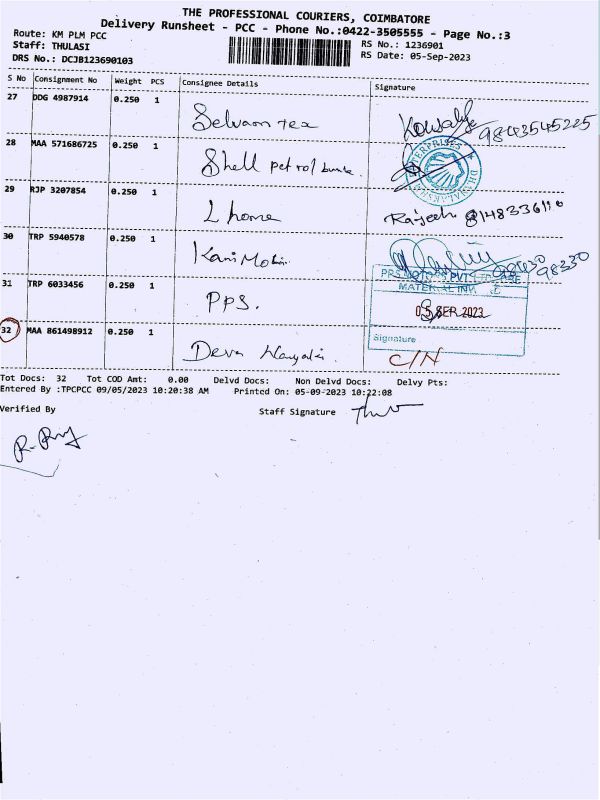 THE PROFESSIONAL COURIERS, COIMBATORE
Delivery Runsheet - PCC - Phone No.:0422-3505555 - Page No.:3
Route: KM PLM PCC
RS No.: 1236901
Staff: THULASI
RS Date: 05-Sep-2023
DRS No.: DCJB123690103
S No Consignment No Weight PCS Consignee Details Signature
27 DDG 4987914 0.250 1 Selvam tex 9843545225
28 MAA 571686725 0.250 1 Shell petrol bunk
29 RJP 3207854 0.250 1 L home Rajesh 8148336110
30 TRP 5940578 0.250 1 Kani Mobin 98430 98330
31 TRP 6033456 0.250 1 PPS.
MATERIAL INW
05 SEP 2023
Signature
32 MAA 861498912 0.250 1 Deva C/N
Tot Docs: 32 Tot COD Amt: 0.00 Delvd Docs: Non Delvd Docs: Delvy Pts:
Entered By :TPCPCC 09/05/2023 10:20:38 AM Printed On: 05-09-2023 10:22:08
Verified By Staff Signature